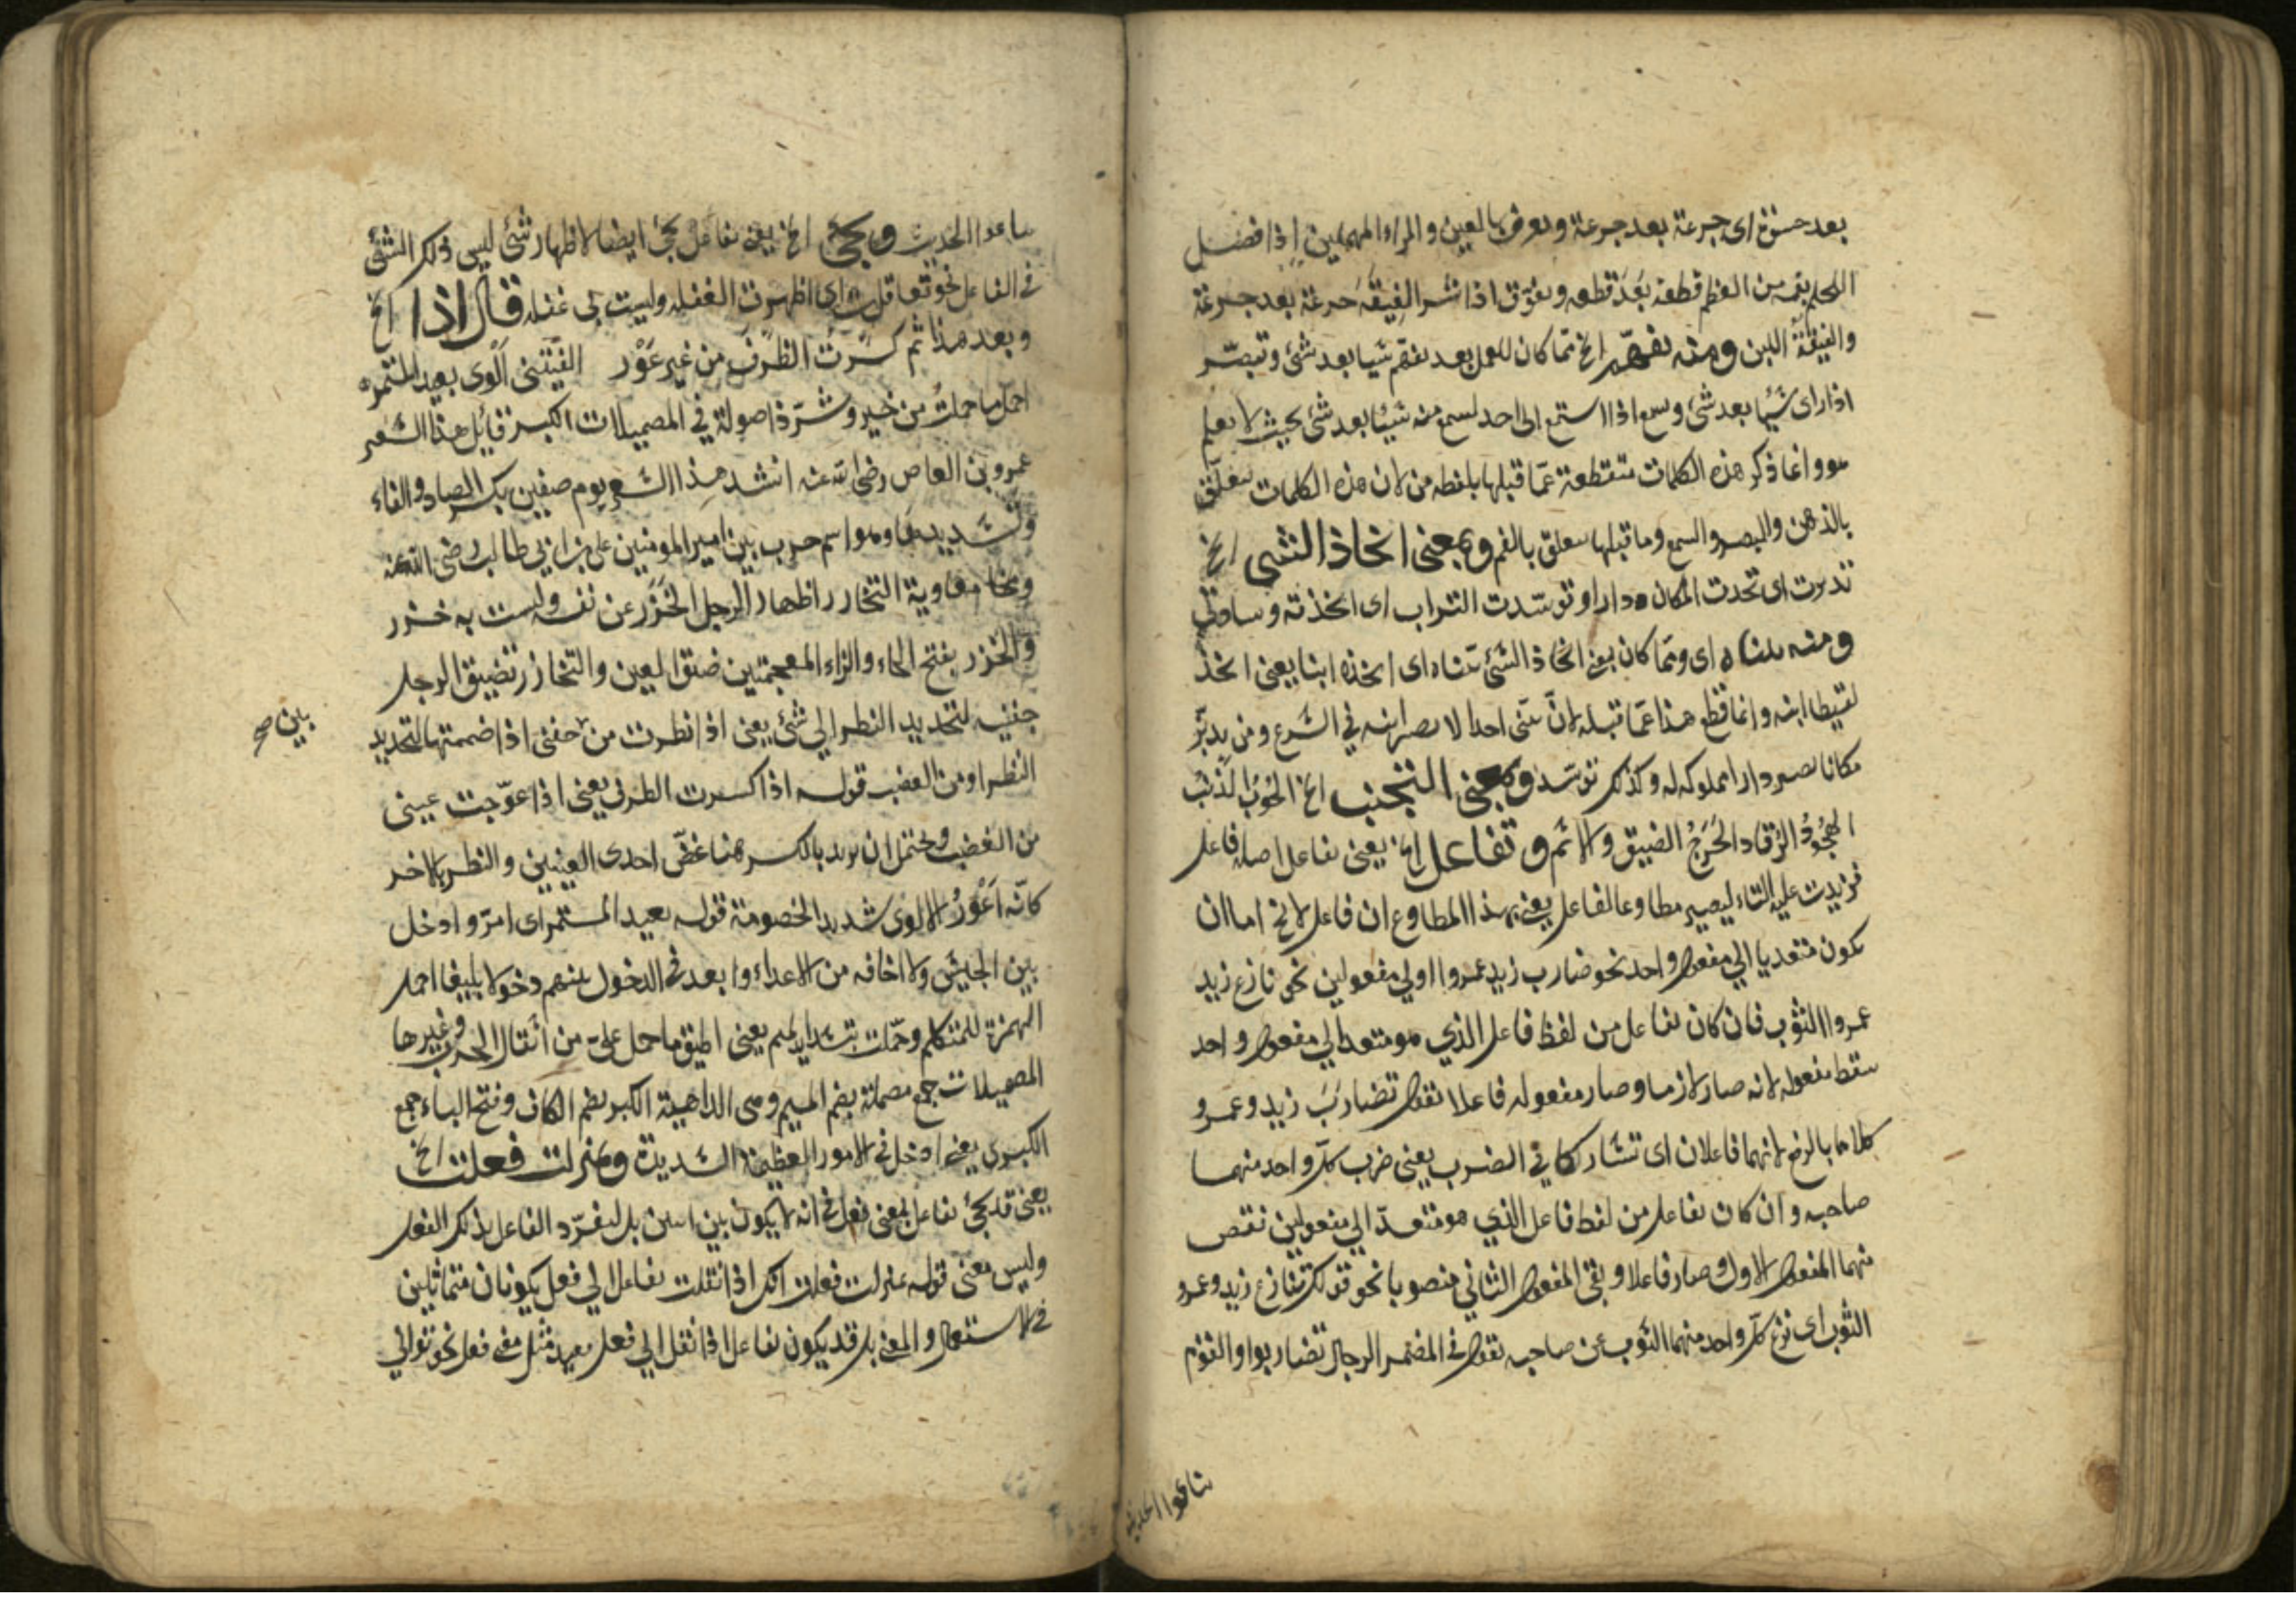 بعد حسوة اى جرعة بعد جرعة وتعرق بالعين والراء المهملين اذا فصل
اللحم بفمه من العظم قطعة بَعْدَ قطعه وتفوّق اذا شرب الفيقة جرعة بعد جرعة
والفيقة اللبن ومنه تفهّم الخ مما كان للعمل بعد تفهّم شيا بعد شئ وتبصّر
اذا راى شيئا بعد شئ وتسمع اذا استمع الى احد لسمع منه شيئا بعد شئ بحيث لا يعلم
هو وانما ذكر هذه الكلمات منقطعة عمّا قبلها بلفظه من لان هذه الكلمات تتعلّق
بالذهن والبصر والسمع وما قبلها يتعلق بالفم وبمعنى اتخاذ الشيى الخ
تديرت اى تحدت المكان دارا وتوسّدت التراب اى اتخذته وسادتي
ومنه تبناه اى ومما كان بمعنى اتخاذ الشئ تبناه اى اتخذه ابنا يعنى اتخذ
لقيطا ابنه وانما قطع هذا عمّا قبله لان تبنى احدا لا يصير ابنه في الشرع ومن يديّر
مكانا يصير دارا مملوكه له وكذلك توسّد وبمعنى التجنب الخ الحُوبُ الذنب
الهُجُودُ الرّقاد الحَرَجُ الضيق والاثم وتفاعل الخ يعنى تفاعل اصله فاعل
فزيدت عليه التاء ليصير مطاوعا لفاعل يعنى بهذا المطاوع ان فاعل لا يخ اما ان
يكون متعديا الي مفعول واحد نحو ضارب زيد عمروا او لي مفعولين نحو نازع زيد
عمروا الثوب فان كان تفاعل من لفظ فاعل الذي هو متعد الي مفعول واحد
سقط مفعوله لانه صار لازما وصار مفعوله فاعلا تقول تضارَبَ زيد وعمرو
كلاهما بالرفع لانهما فاعلان اى تشاركا في الضرب يعنى ضرب كلّ واحد منهما
صاحبه وان كان تفاعل من لفظ فاعل الذي هو متعدّ الي مفعولين نقص
منهما المفعول الاول وصار فاعلا وبقى المفعول الثاني منصوبا نحو قولك تنازع زيد وعمرو
الثوب اى نزع كلّ واحد منهما الثوب عن صاحبه تقول في المضمر الرجال تضاربوا والقوم
تنازعوا الحديث
تنازعوا الحديث ويجئ الخ يعنى تفاعل يجئ ايضا لاظهار شئ ليس ذلك الشئ
في الفاعل نحو تغافلت اى اظهرت الغفله وليست بى غفله قال اذا الخ
وبعد هذا ثم كسّرتُ الطَّرْفَ من غير عَوَر الفَيْتَنى اَلْوَى بعيد المستمر
احمل ما حملتُ من خير وشرّ ذا صولة في المصمئلات الكبر قائل هذا الشعر
عمرو بن العاص رضى الله عنه انشد هذا الشعر يوم صفين بكسر الصاد والفاء
وتشديدها وهو اسم حرب بين امير المومنين على بن ابي طالب رضى الله عنه
وبين معاوية التخازر اظهار الرجل الخَزَرَ عن نفسه وليست به خزر
والخزر بفتح الخاء والزاء المعجمتين ضيق العين والتخازر تضييق الرجل
جفنيه لتحديد النظر الي شئ يعنى اذا نظرت من جفنى اذا ضممتها لتحديد
بين صح
النظر او من الغضب قوله اذا كسرت الطرف يعنى اذا عوّجت عينى
من الغضب ويحتمل ان يريد بالكسر هنا غضّ احدى العينين والنظر بالاخر
كانّه اَعْوَرُ الالوى شديد الخصومة قوله بعيد المستمر اى امرّ وادخل
بين الجيش ولا اخافه من الاعداء وابعد في الدخول بينهم دخولا بليغا احمل
الهمزة للمتكلم وحمّلت بتشديد الميم يعنى اطيق ما حمل علىّ من اثقال الحرب وغيرها
المصميلات جمع مصملة بضم الميم وهى الداهية الكبر بضم الكاف وفتح الباء جمع
الكبرى يعنى ادخل في الامور العظيمة الشديدة وبمنزلت فعلت الخ
يعنى قد يجئ تفاعل بمعنى فعل في انه لا يكون بين اسمين بل ليفرّد الفاعل بذلك الفعل
وليس معنى قوله بمنزلت فعلت انك اذا نقلت تفاعل الي فعل يكونان متماثلين
في الاستعمال والمعنى بل قد يكون تفاعل اذا نقل الي فعل بعيد مثل معنى فعل نحو تواني